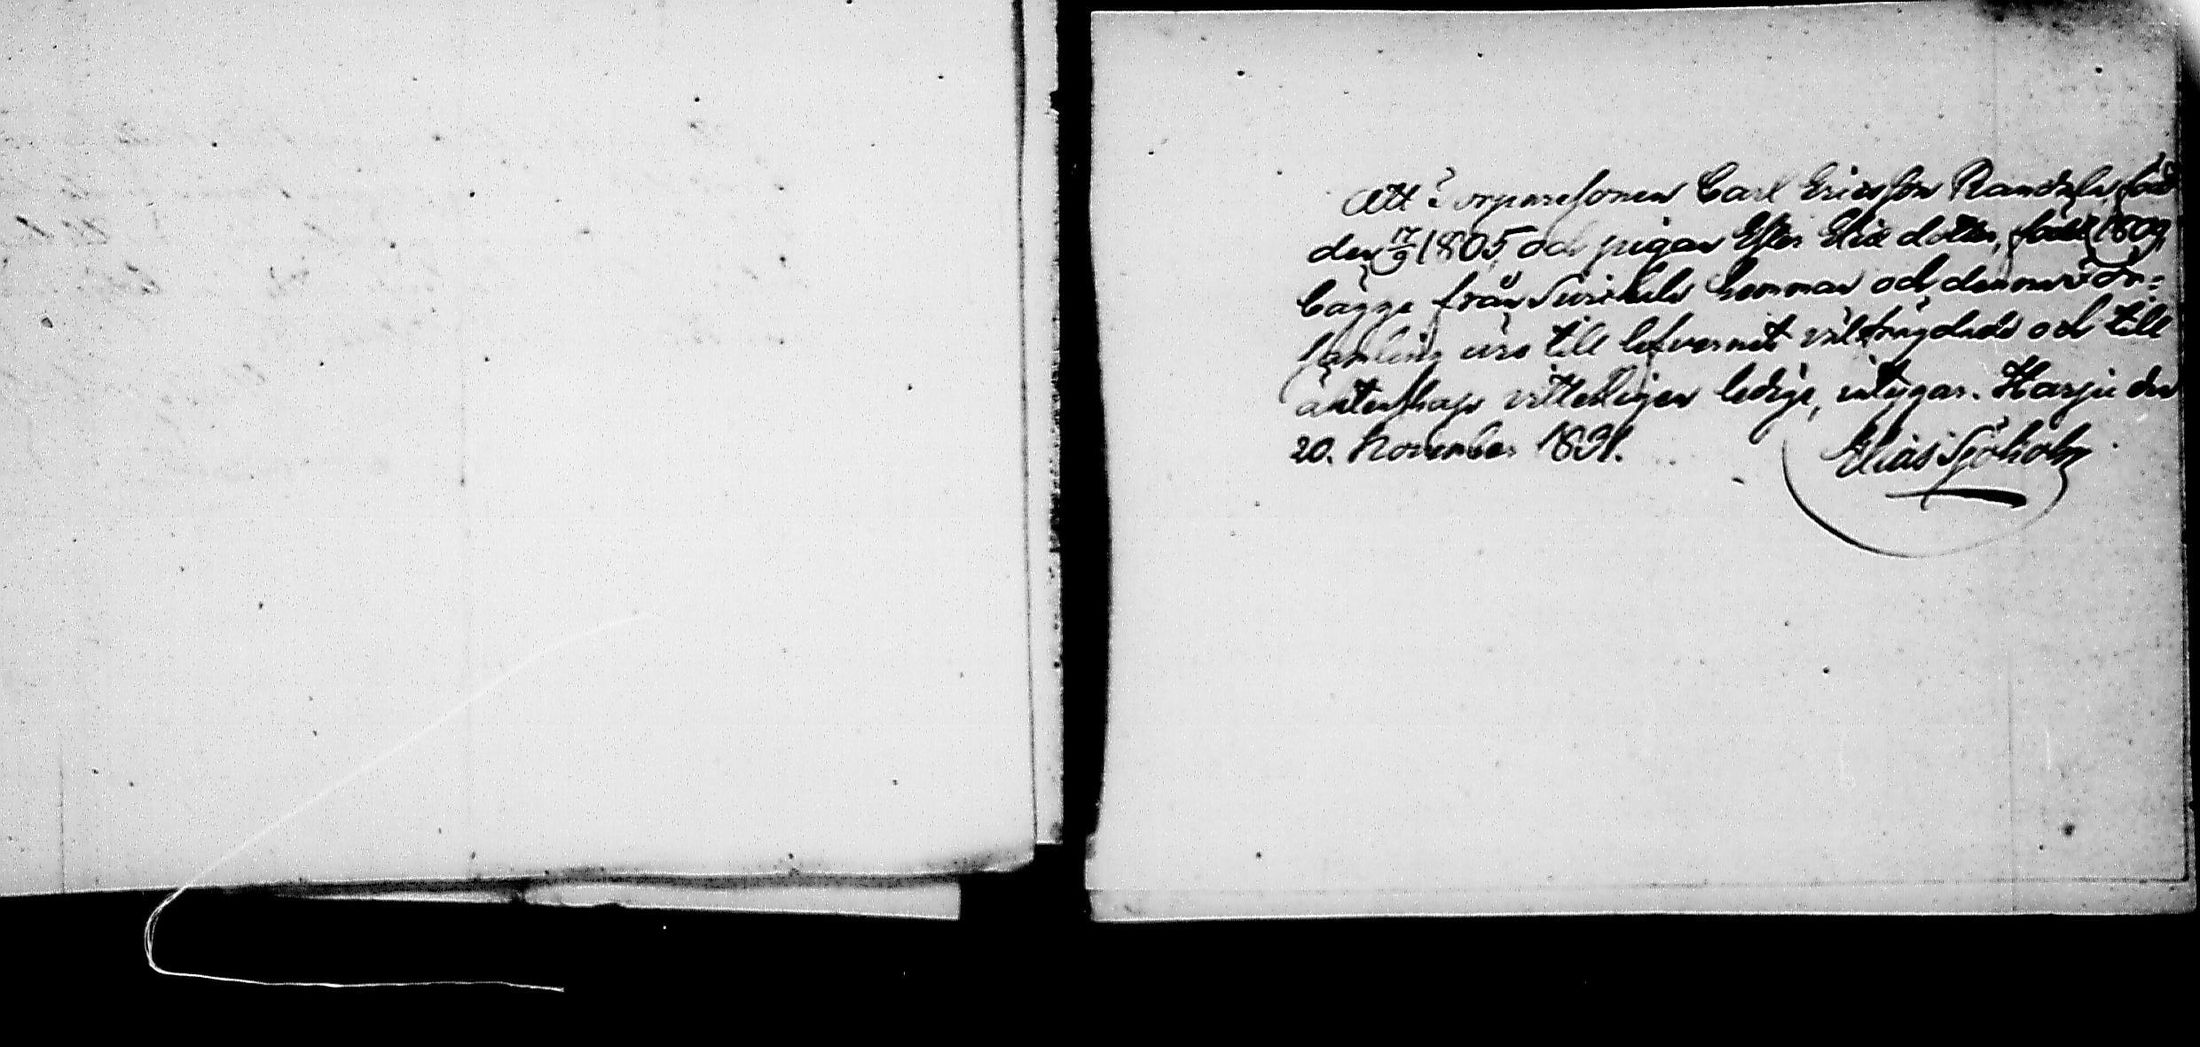 Att Torparesonen Carl Ericsson Randzln, född
den 17/9 1805, och pigan Ester Eliædotter, född 1809,
bägge från hemman och denna för-
samling äro till lefvernet välfrägdade och till
äktenskap vitterligen ledige, intygar. Harju den
20. November 1831. Elias Sjöholm